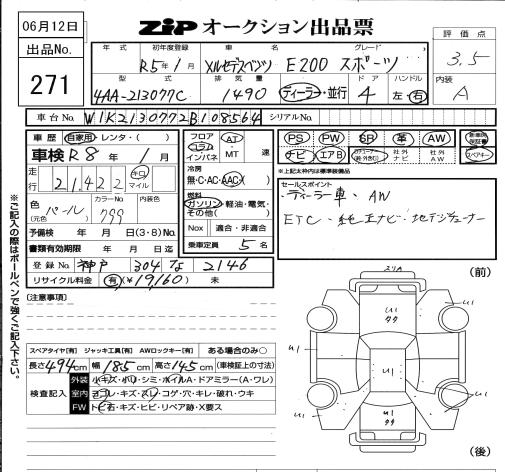 06月12日
出品No.
271
ZIP オークション出品票
評価点
3.5
内装
A
年式 初年度登録 車名 グレード
R5年1月 メルセデスベンツ E200 スポーツ
型式 排気量 ドア ハンドル
4AA-213077C 1490 ディーラー・並行 4 左・右
車台No. W1K2130772B108564 シリアルNo.
車歴 自家用・レンタ・( )
車検 R8年1月
走行 21,422 キロ マイル
色(元色) パール カラーNo. 799 内装色
予備検 年 月 日(3・8)No.
書類有効期限 年 月 日迄
登録No. 神戸 304 な 2146
リサイクル料金 有(¥19,160) 未
フロア コラム インパネ AT・MT 速
冷房 無・C・AC・AAC・( )
燃料 ガソリン・軽油・電気・その他( )
Nox 適合・非適合
乗車定員 5名
PS PW SR 革 AW
ナビ エアB 社外ナビ 社外AW スペアキー
*上記太枠内は標準装備
セールスポイント
・ディーラー車・AW
ETC・純正ナビ・地デジチューナー
※ご記入の際はボールペンで強くご記入下さい。
(注意事項)
スペアタイヤ[有] ジャッキ工具[有] AWロックキー[有] ある場合のみ○
長さ494cm 幅185cm 高さ145cm (車検証上の寸法)
検査記入
外装 小キズ・小凹・シミ・ホイルA・ドアミラー(A・ワレ)
室内 ヨゴレ・キズ・スレ・コゲ・穴・キレ・破れ・ウキ
FW トビ石・キズ・ヒビ・リペア跡・X要ス
(前)
スリA
U1
U1
タタ
U1
U1
A
U1
U1
タタ
U1
(後)